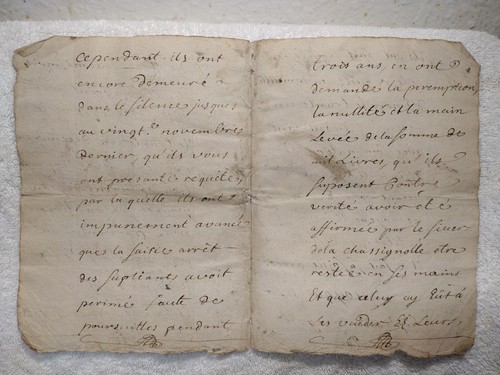 cependant ils ont
encore demeuré
dans le silence jusques
au vingt novembre
dernier, qu'ils vous
ont presanté requéte,
par la quelle ils ont
impunement avancé
que la saisie arrêt
des supliants avoit
perimé faute de
poursuittes pendant
trois ans en ont
demandé la peremption,
la nullité et la main
Levée de la somme de
mil Livres, qu'ils
suposent Contre
verité avoir eté
affirmée par le sieur
de la chassignolle etre
restée en ses mains
Et que celuy cy Eut à
Les vuider Et Leurs